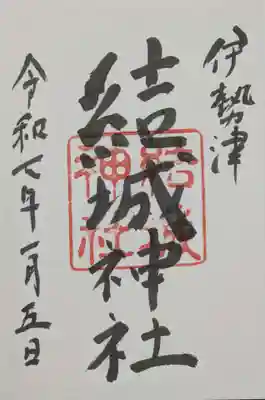 伊勢津
結城神社
結城
神社
令和七年一月五日